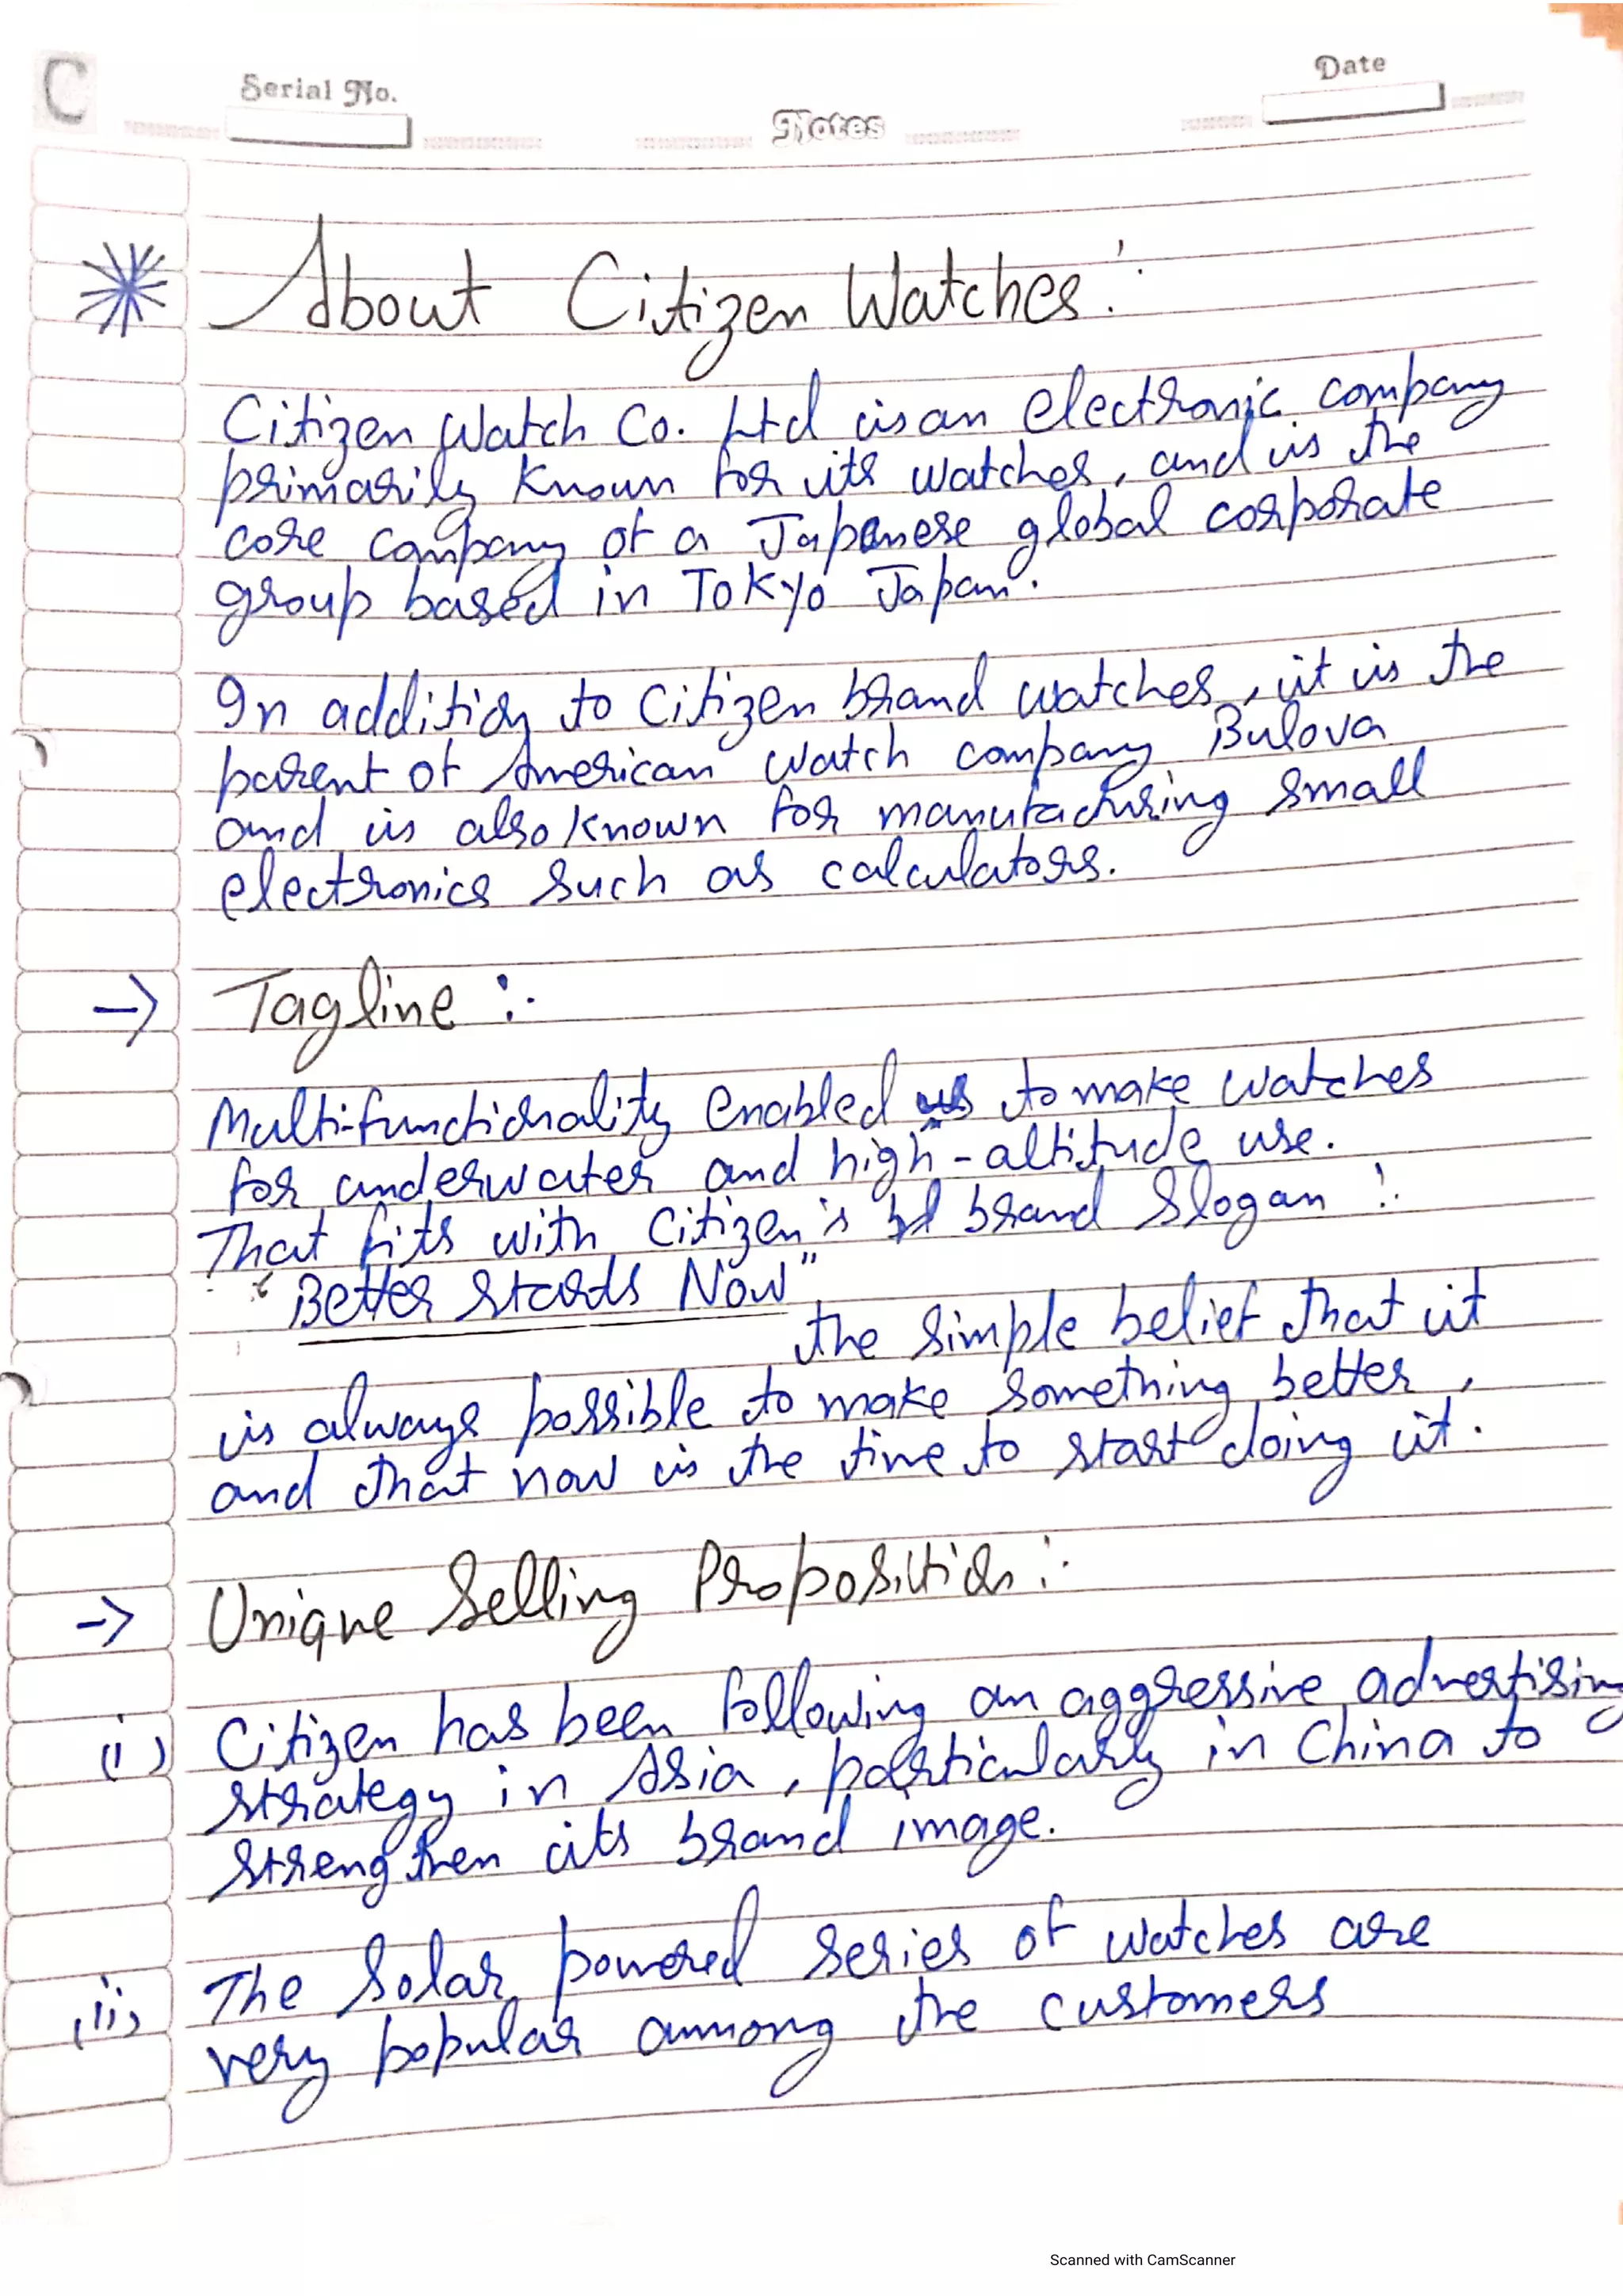 C
Serial No.
Notes
Date
About Citizen Watches :
Citizen Watch Co. Ltd is an electronic company
primarily known for its watches, and is the
core company of a Japanese global corporate
group based in Tokyo Japan.
In addition to Citizen brand watches, it is the
parent of American watch company Bulova
and is also known for manufacturing small
electronics such as calculators.
→ Tagline :-
Multi-functionality enabled us to make watches
for underwater and high-altitude use.
That fits with Citizen's brand slogan :
"Better Starts Now"
the simple belief that it
is always possible to make something better,
and that now is the time to start doing it.
→ Unique Selling Proposition :-
(i) Citizen has been following an aggressive advertising
strategy in Asia, particularly in China to
strengthen its brand image.
(ii) The Solar powered series of watches are
very popular among the customers
Scanned with CamScanner